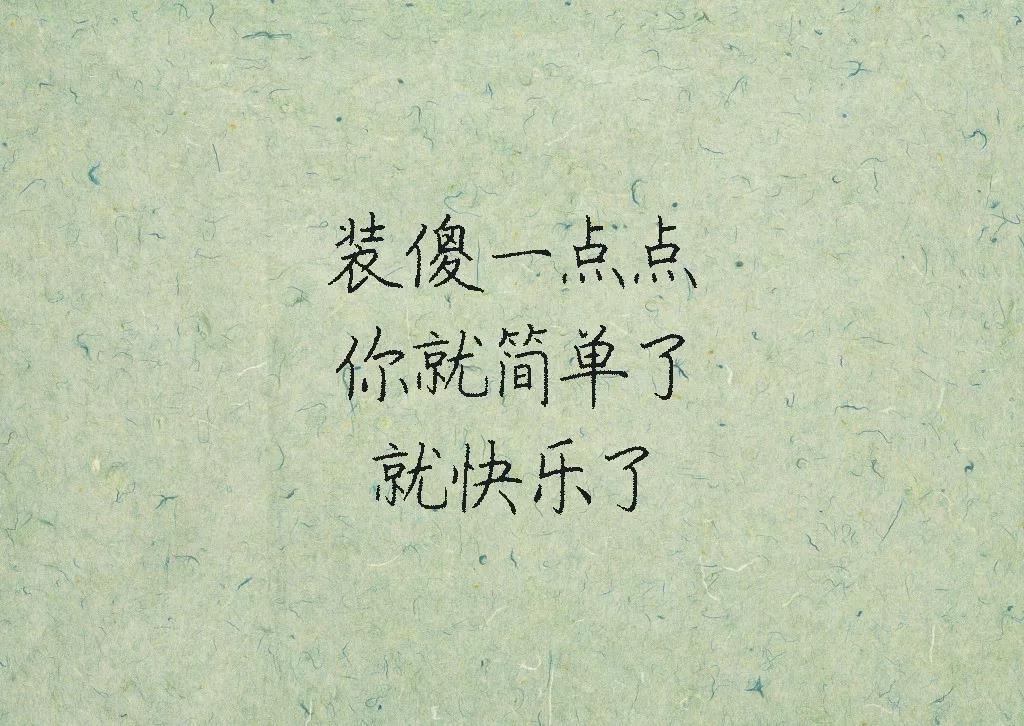 装傻一点点
你就简单了
就快乐了